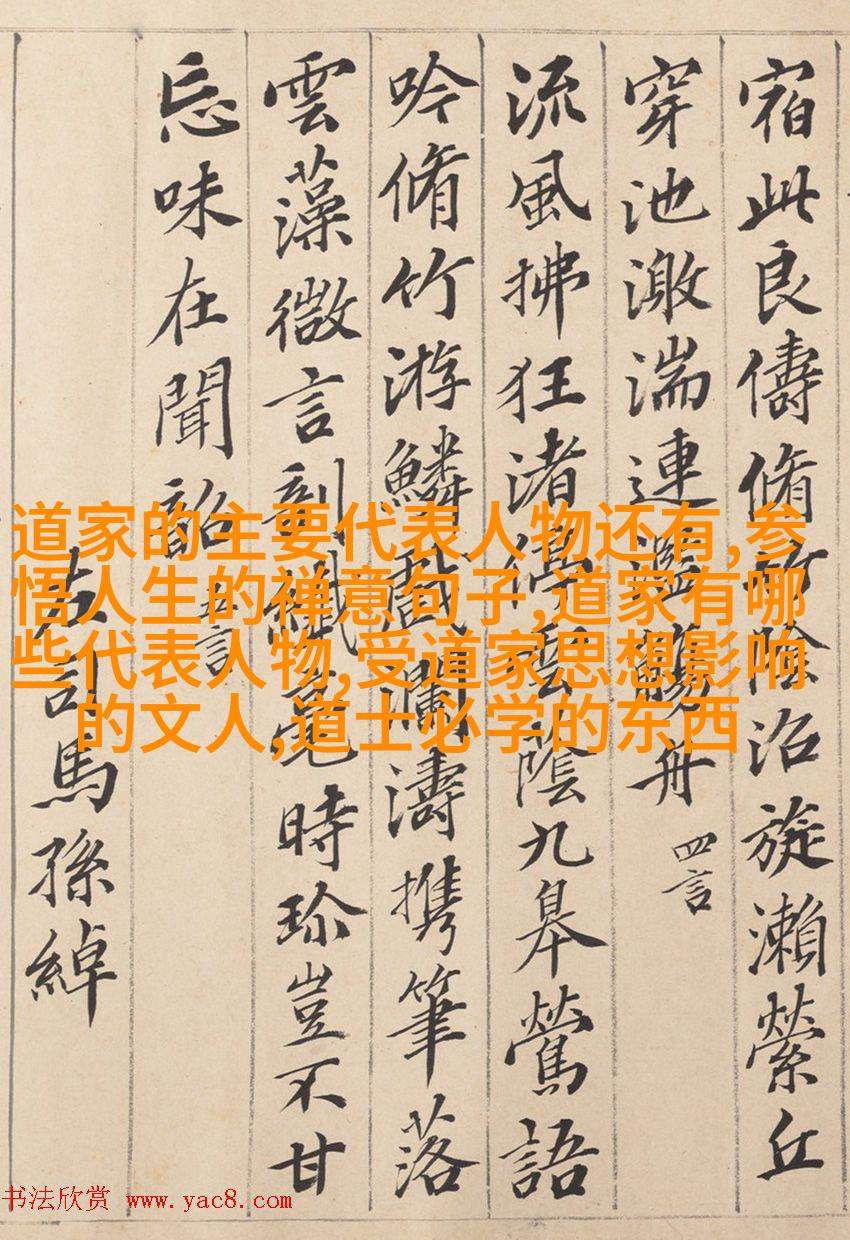 宿此良儔脩竹陰沼旋瀨縈丘
穿池激湍連濫觴舟 四言
流風拂狂渚停雲蔭九皋鶯語
吟脩竹游鱗戲瀾濤携筆落
雲藻微言剖纖毫時珍豈不甘
忘味在聞韶 五言
右司馬孫綽
道家的主要代表人物还有,参
悟人生的禅意句子,道家有哪
些代表人物,受道家思想影响
的文人,道士必学的东西
书法欣赏 www.yac8.com